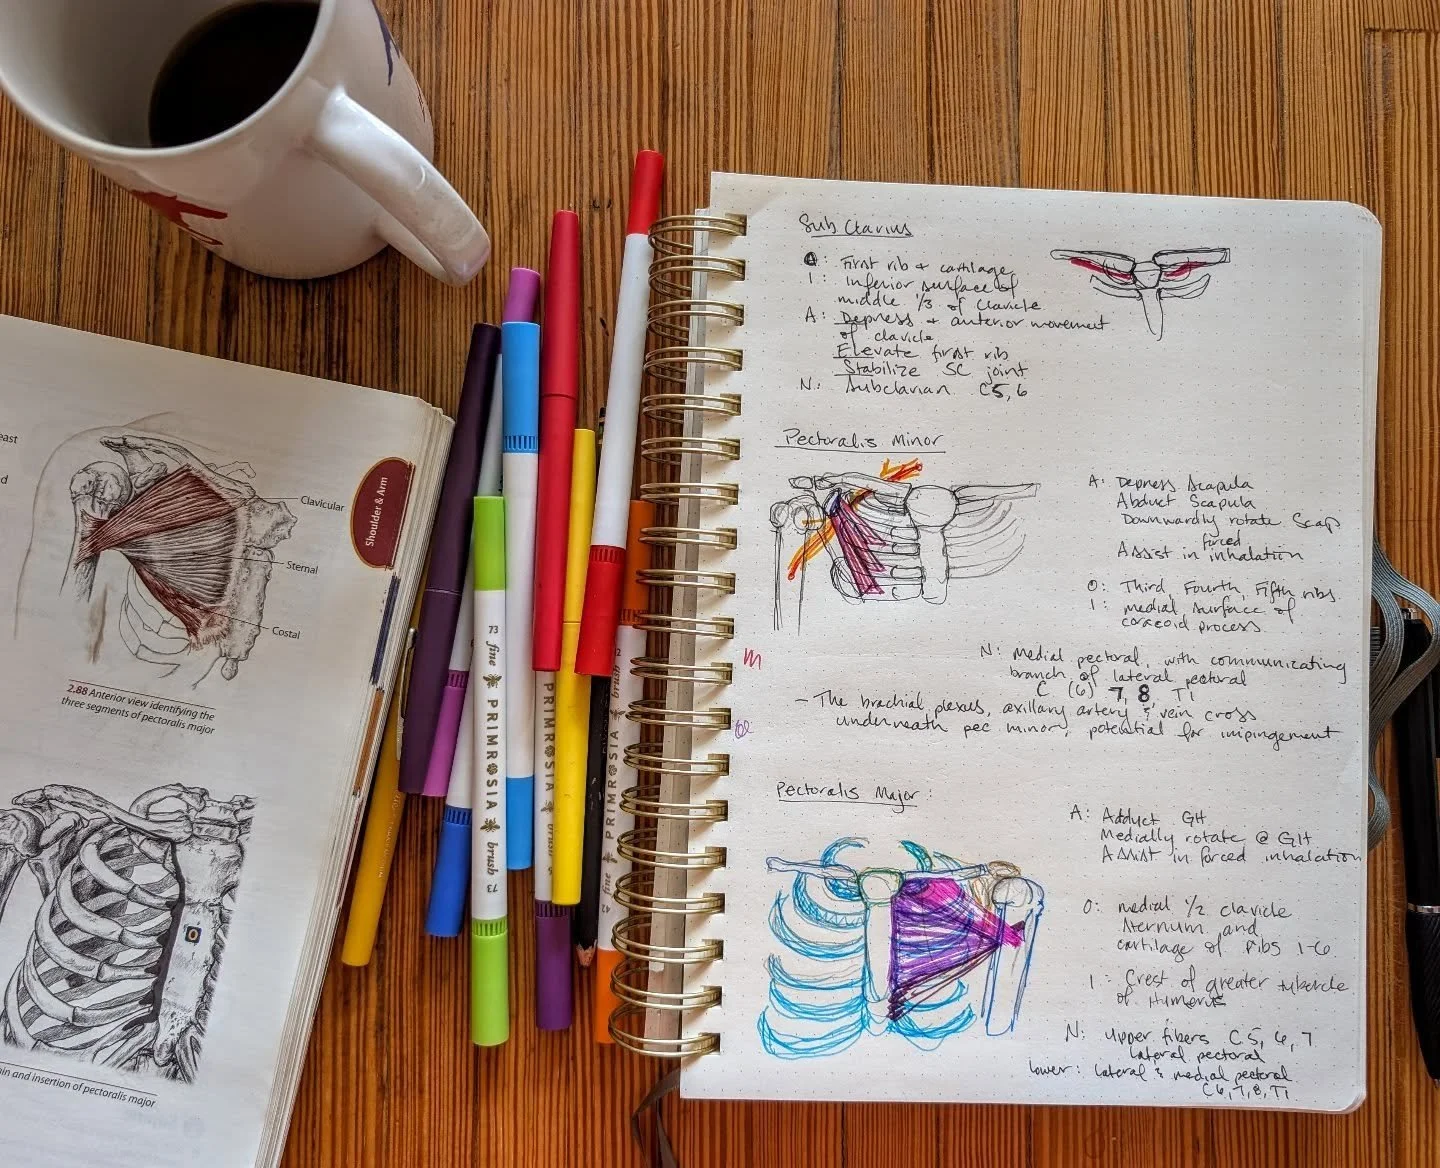 east
d
Clavicular
Sternal
Costal
Shoulder & Arm
2.88 Anterior view identifying the
three segments of pectoralis major
in and insertion of pectoralis major
73 fine PRIMROSIA brush 73
PRIMROSIA brush
42 fine PRIMROSIA brush
Sub Clavius
O: First rib & cartilage
I: Inferior surface of
middle 1/3 of Clavicle
A: Depress & anterior movement
of clavicle
Elevate first rib
Stabilize SC joint
N: Subclavian C5,6
Pectoralis Minor
A: Depress Scapula
Abduct Scapula
Downwardly rotate Scap
forced
Assist in inhalation
O: Third, Fourth, Fifth ribs.
I: medial surface of
coracoid process
N: Medial pectoral, with communicating
branch of lateral pectoral
C (6) 7, 8 T1
- The brachial plexus, axillary artery & vein cross
underneath pec minor, potential for impingement
m
Pectoralis Major:
A: Adduct GH
Medially rotate @ GH
Assist in forced inhalation
O: medial 1/2 clavicle
Sternum and
cartilage of ribs 1-6
I: Crest of greater tubercle
of Humerus
N: Upper fibers C5, 6, 7
lateral pectoral
Lower: lateral & medial pectoral
C6,7,8,T1